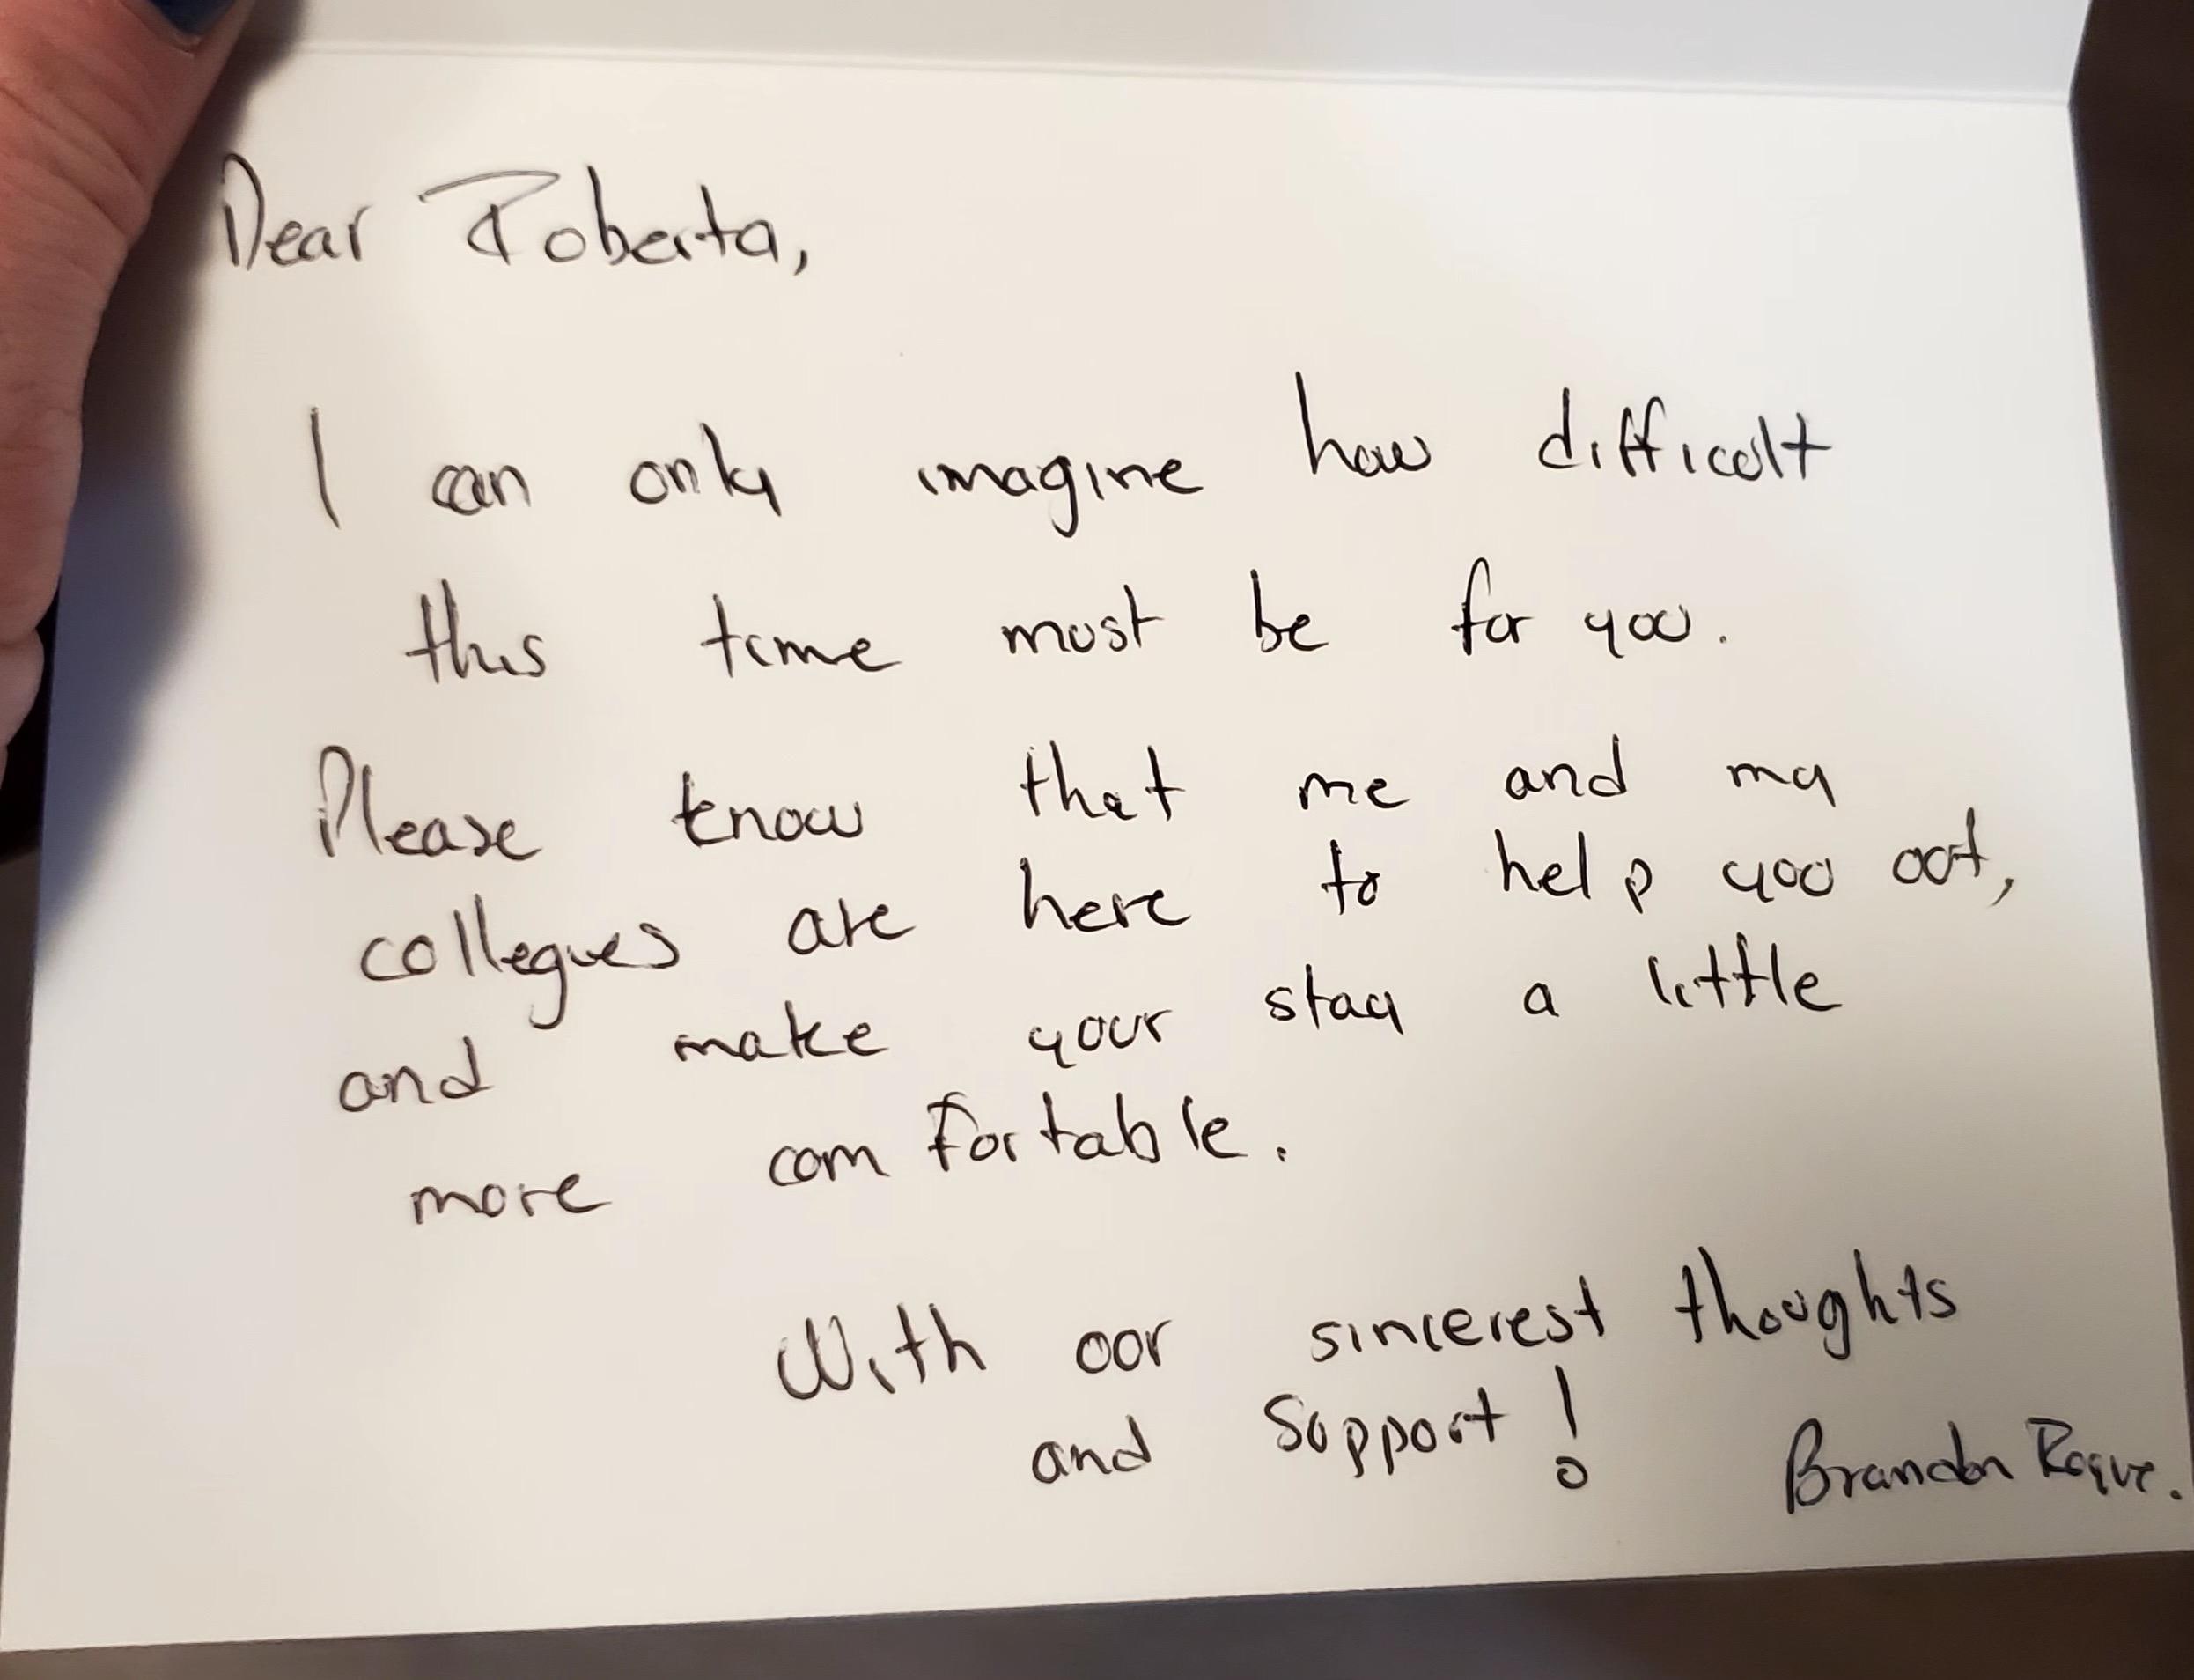 Dear Roberta,
I can only imagine how difficult
this time must be for you.
Please know that me and my
collegues are here to help you out,
and make your stay a little
more comfortable.
With our sincerest thoughts
and Support!
Brandon Roque.